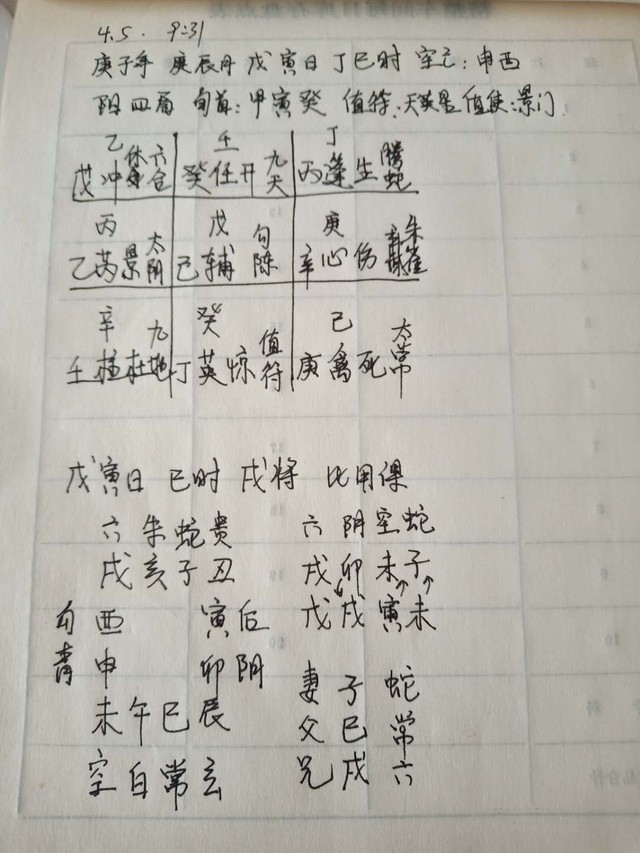 4.5. 9:31
庚子年 庚辰月 戊寅日 丁巳时 空亡:申酉
阴四局 旬首:甲寅癸 值符:天英星 值使:景门
乙 壬 丁
戊冲休六合 癸任开九天 丙蓬生腾蛇
丙 戊 庚
乙芮景太阴 己辅勾陈 辛心伤朱雀
辛 癸 己
壬柱杜九地 丁英惊值符 庚禽死太常
戊寅日 巳时 戌将 比用课
六朱蛇贵 六阴空蛇
戌亥子丑 戌卯未子
勾酉 寅后 戊戌寅未
青申 卯阴 妻子蛇
未午巳辰 父巳常
空白常玄 兄戌六